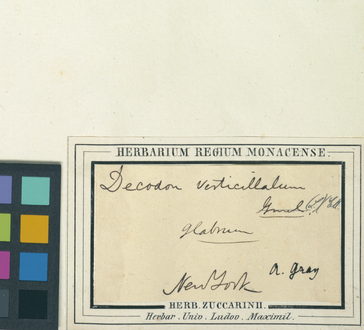 HERBARIUM REGIUM MONACENSE.
Decodon verticillatum
glabrum
New York A. Gray
HERB. ZUCCARINII.
Herbar. Univ. Ludov. Maximil.